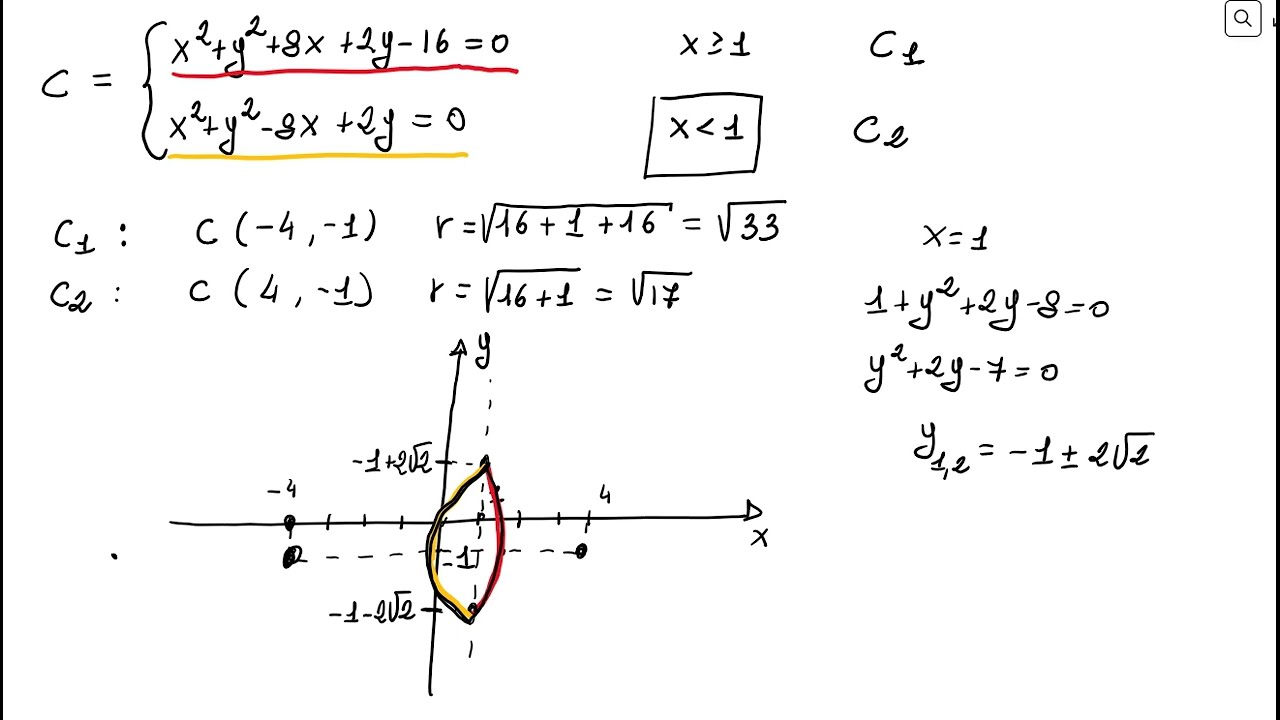 C = { x²+y²+8x+2y-16=0 x≥1 C1
x²+y²-8x+2y=0 x<1 C2
C1 : C (-4,-1) r=√16+1+16 = √33
C2 : C (4,-1) r=√16+1 = √17
x=1
1+y²+2y-8=0
y²+2y-7=0
y1,2 = -1±2√2
y
-1+2√2
-4 1 4
x
-1
-1-2√2